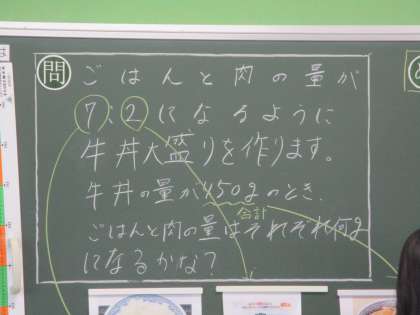 問
ごはんと肉の量が
7:2になるように
牛丼大盛りを作ります。
牛丼の量が450gのとき、
合計
ごはんと肉の量はそれぞれ何g
になるかな?